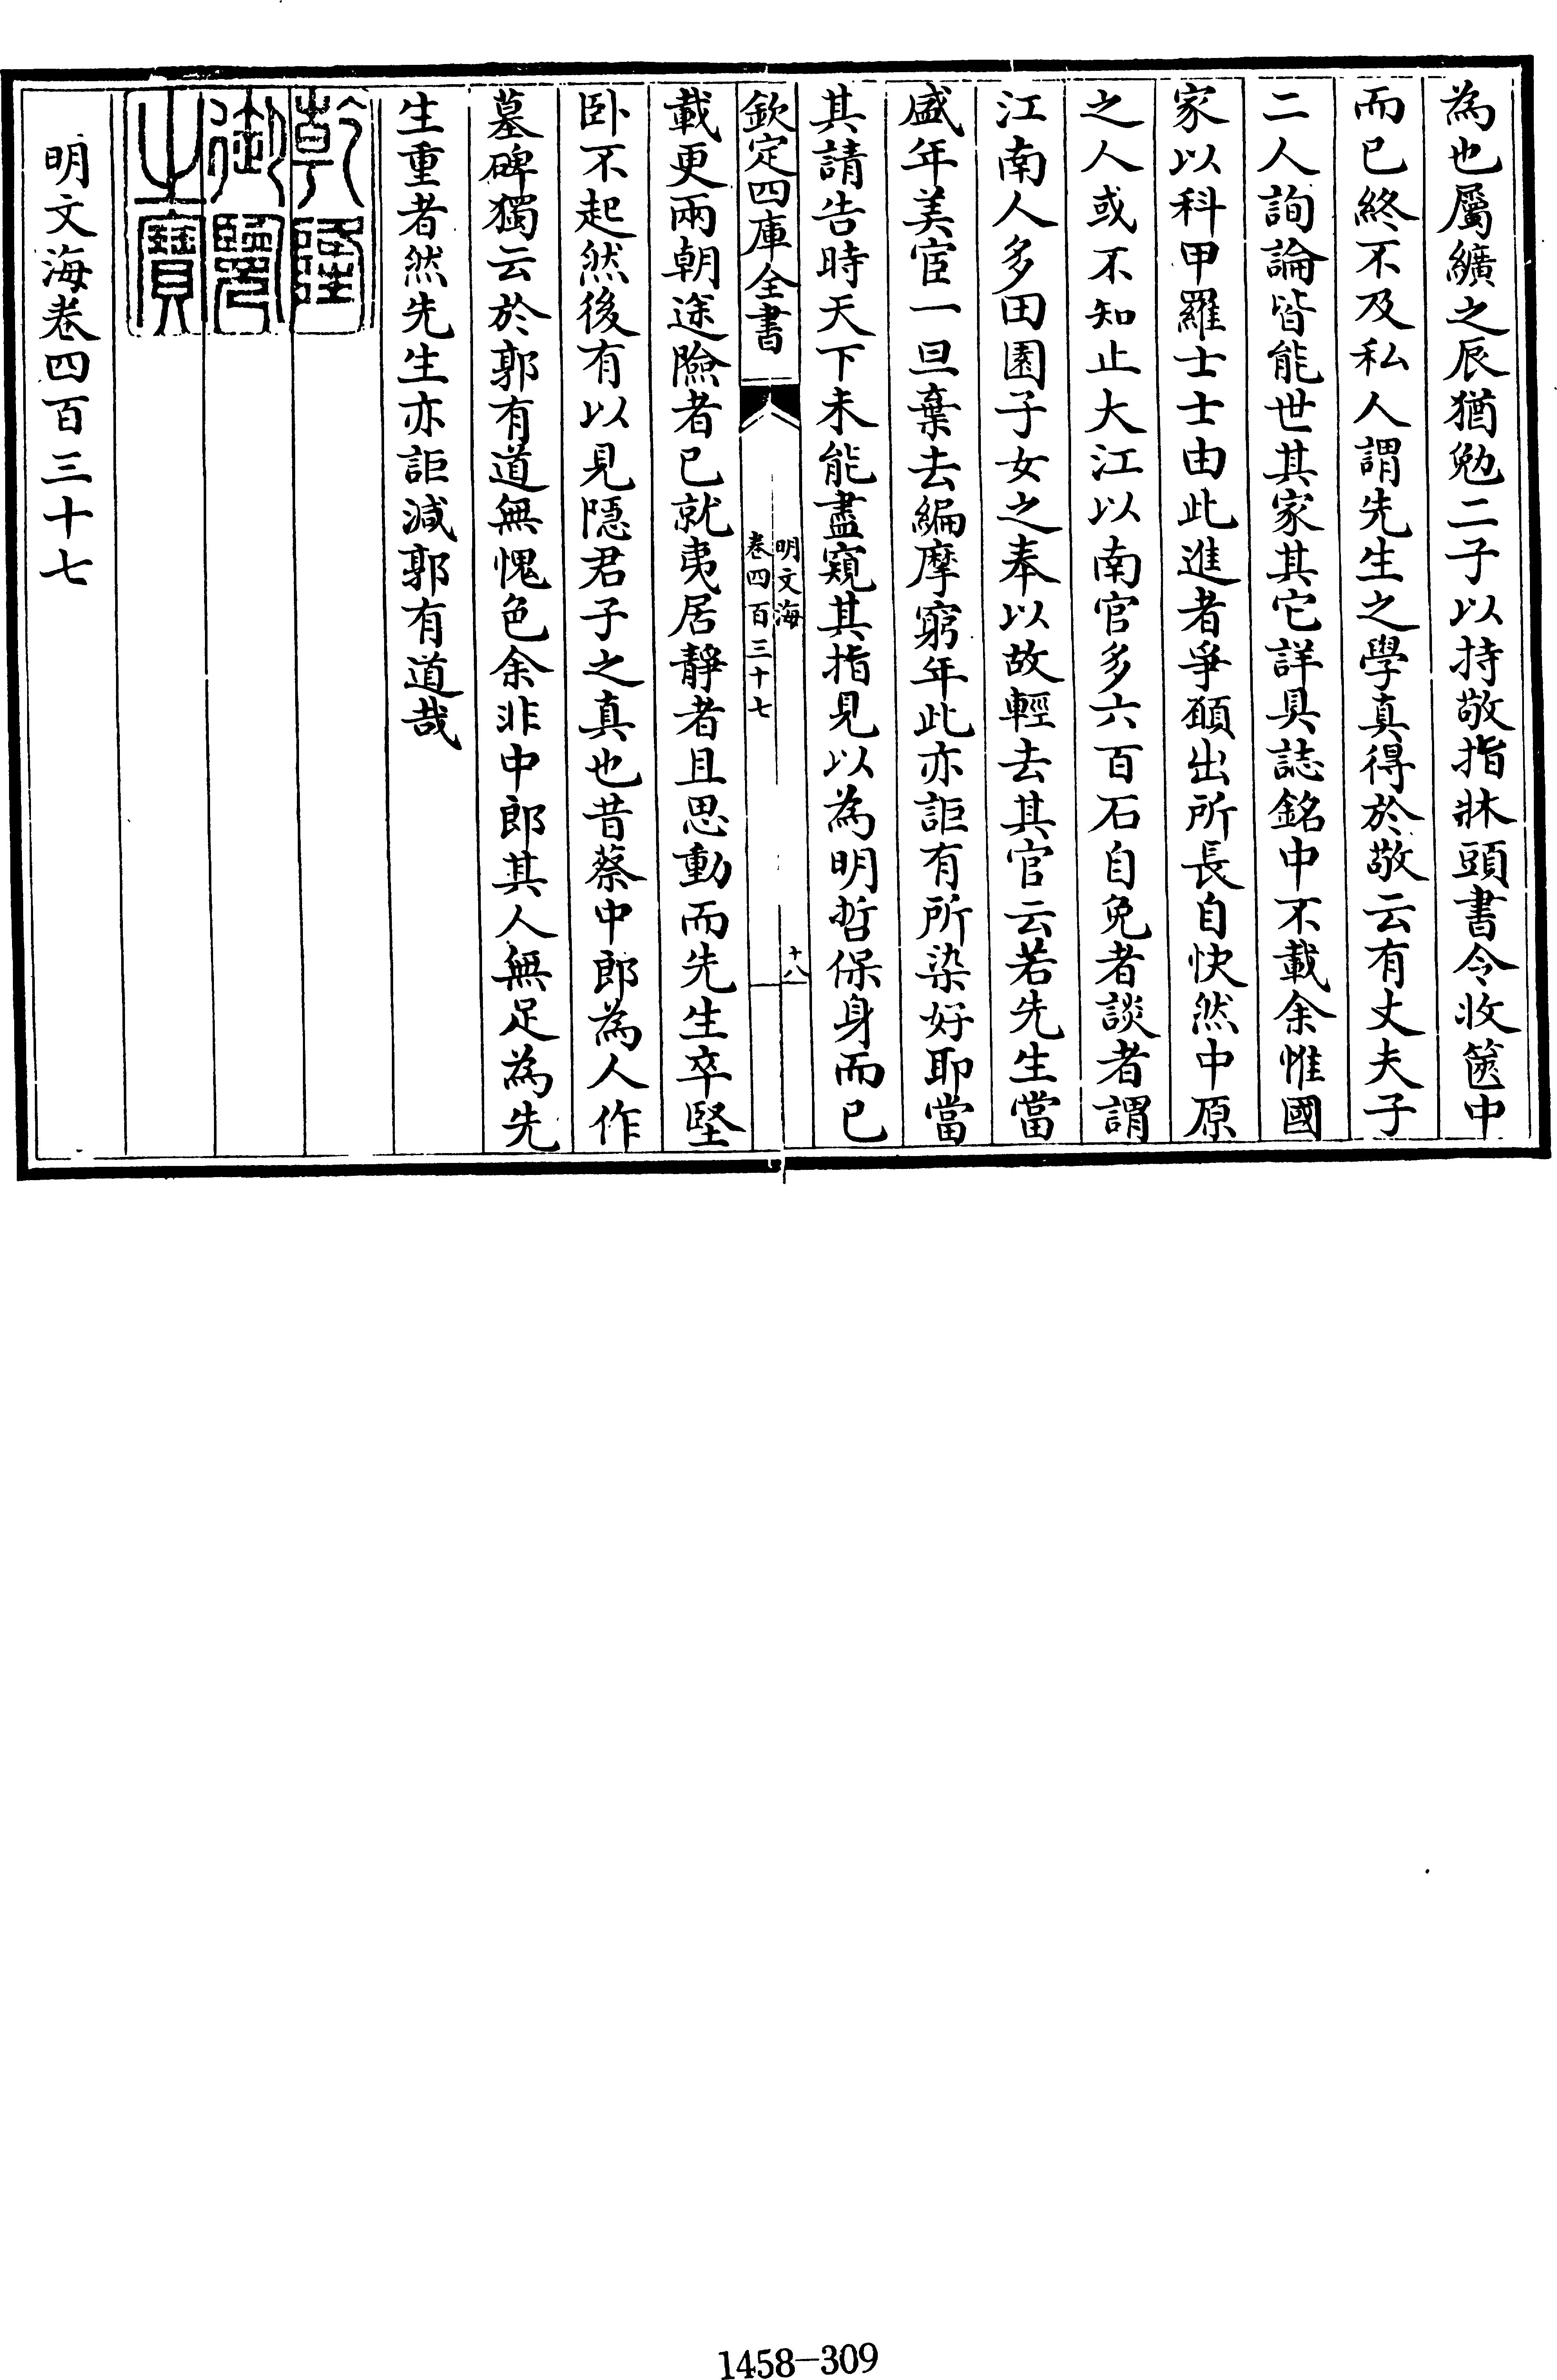 為也屬纊之辰猶勉二子以持敬指牀頭書令收篋中
而已終不及私人謂先生之學真得於敬云有丈夫子
二人詢論皆能世其家其它詳具誌銘中不載余惟國
家以科甲羅士士由此進者爭頋出所長自快然中原
之人或不知止大江以南官多六百石自免者談者謂
江南人多田園子女之奉以故輕去其官云若先生當
盛年美宦一旦棄去編摩窮年此亦詎有所染好耶當
其請告時天下未能盡窺其指見以為明哲保身而已
欽定四庫全書
明文海
卷四百三十七
十八
載更兩朝途險者已就夷居靜者且思動而先生卒堅
卧不起然後有以見隱君子之真也昔蔡中郎為人作
墓碑獨云於郭有道無愧色余非中郎其人無足為先
生重者然先生亦詎減郭有道哉
乾隆
御覽
之寶
明文海卷四百三十七
1458-309